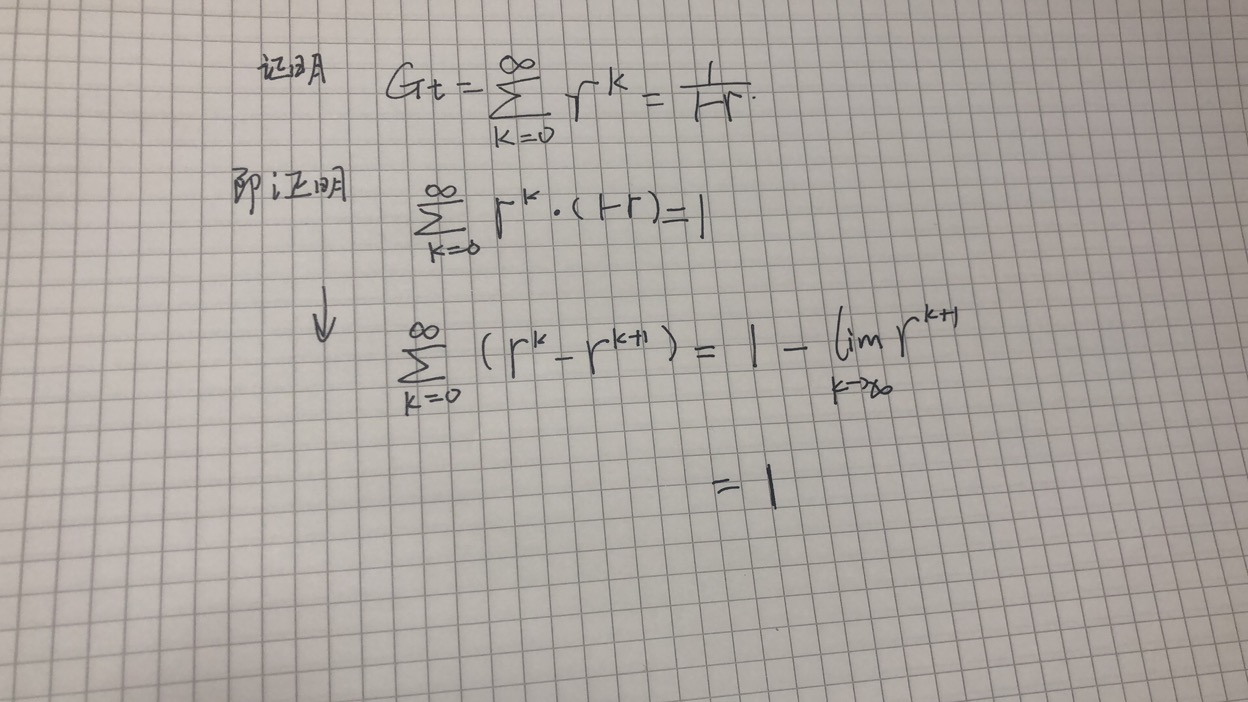 证明 Gt = ∑_{k=0}^{∞} r^k = 1/(1-r).
即证明 ∑_{k=0}^{∞} r^k · (1-r) = 1
↓ ∑_{k=0}^{∞} (r^k - r^{k+1}) = 1 - lim_{k→∞} r^{k+1}
= 1